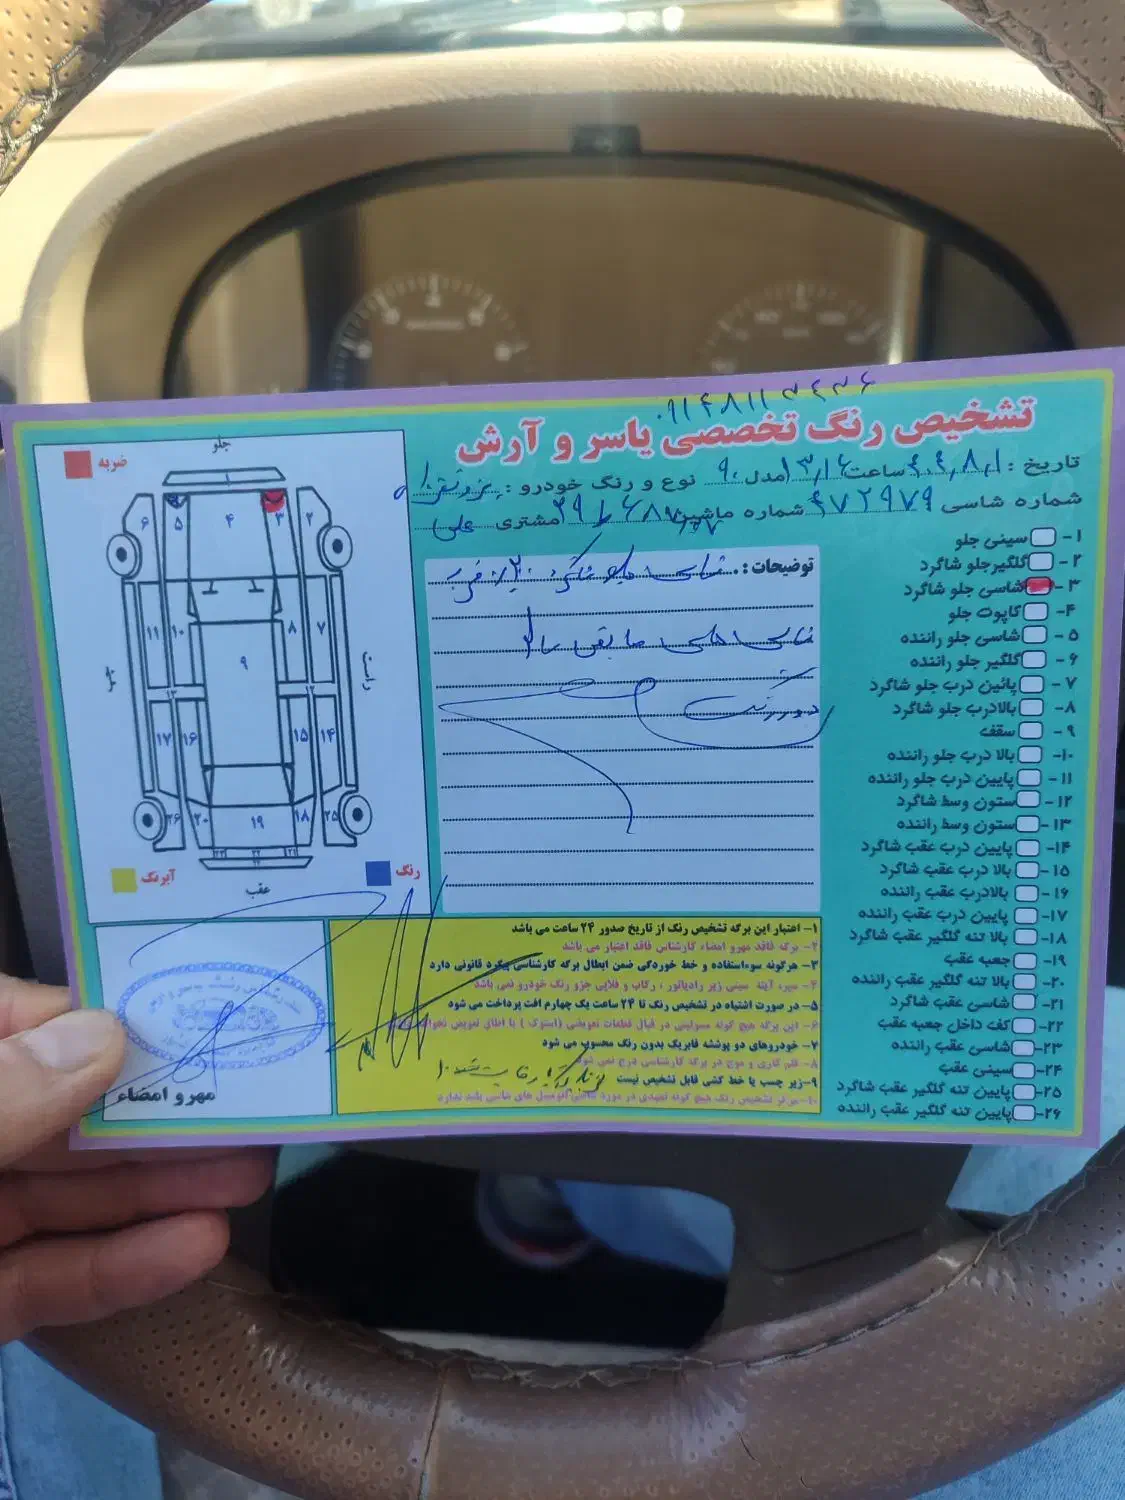 ۰۹۱۴۸۱۱۳۴۳۶
تشخیص رنگ تخصصی یاسر و آرش
تاریخ : ۴۰۴,۸,۱ ساعت ۱۳,۱۶ مدل ۹۰ نوع و رنگ خودرو :
شماره شاسی ۴۷۲۹۷۹ شماره ماشین مشتری علی
جلو
ضربه
۱
۲
۳
۴
۵
۶
۷
۸
۹
۱۰
۱۱
۱۲
۱۳
۱۴
۱۵
۱۶
۱۷
۱۸
۱۹
۲۰
۲۵
۲۶
راست
چپ
آبرنگ
رنگ
عقب
توضیحات :
شاسی جلو شاگرد ۲۰٪ ضربه
شاسی های مابقی سالم
دور رنگ
۱- سینی جلو
۲- گلگیر جلو شاگرد
۳- شاسی جلو شاگرد
۴- کاپوت جلو
۵- شاسی جلو راننده
۶- گلگیر جلو راننده
۷- پائین درب جلو شاگرد
۸- بالادرب جلو شاگرد
۹- سقف
۱۰- بالا درب جلو راننده
۱۱- پایین درب جلو راننده
۱۲- ستون وسط شاگرد
۱۳- ستون وسط راننده
۱۴- پایین درب عقب شاگرد
۱۵- بالا درب عقب شاگرد
۱۶- بالادرب عقب راننده
۱۷- پایین درب عقب راننده
۱۸- بالا تنه گلگیر عقب شاگرد
۱۹- جعبه عقب
۲۰- بالا تنه گلگیر عقب راننده
۲۱- شاسی عقب شاگرد
۲۲- کف داخل جعبه عقب
۲۳- شاسی عقب راننده
۲۴- سینی عقب
۲۵- پایین تنه گلگیر عقب شاگرد
۲۶- پایین تنه گلگیر عقب راننده
۱- اعتبار این برگه تشخیص رنگ از تاریخ صدور ۲۴ ساعت می باشد
۲- برگه فاقد مهرو امضاء کارشناس فاقد اعتبار می باشد
۳- هرگونه سوءاستفاده و خط خوردگی ضمن ابطال برگه کارشناسی پیگرد قانونی دارد
۴- سپر، آینه سینی زیر رادیاتور ، رکاب و قلاپی جزو رنگ خودرو نمی باشد
۵- در صورت اشتباه در تشخیص رنگ تا ۲۴ ساعت یک چهارم افت پرداخت می شود
۶- این برگه هیچ گونه مسولیتی در قبال قطعات تعویضی (استوک) با اطاق تعویض
۷- خودروهای دو پوشته فابریک بدون رنگ محسوب می شود
۸- قلم کاری و موج در برگه کارشناسی درج نمی شود
۹- زیر چسب یا خط کشی قابل تشخیص نیست
۱۰- مرکز تشخیص رنگ هیچ گونه تعهدی در مورد
مهر و امضاء